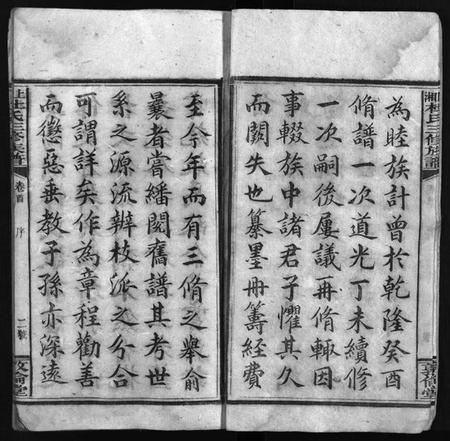 為睦族計曾於乾隆癸酉
脩譜一次道光丁未續修
一次嗣後屢議再脩輒因
事輟族中諸君子懼其久
而闕失也纂墨冊籌經費
至今年而有三脩之舉俞
曩者嘗繙閱舊譜其考世
系之源流辨枝派之分合
可謂詳矣作為章程勸善
而懲惡垂教子孫亦深遠
卷首 序
二號
敦倫堂